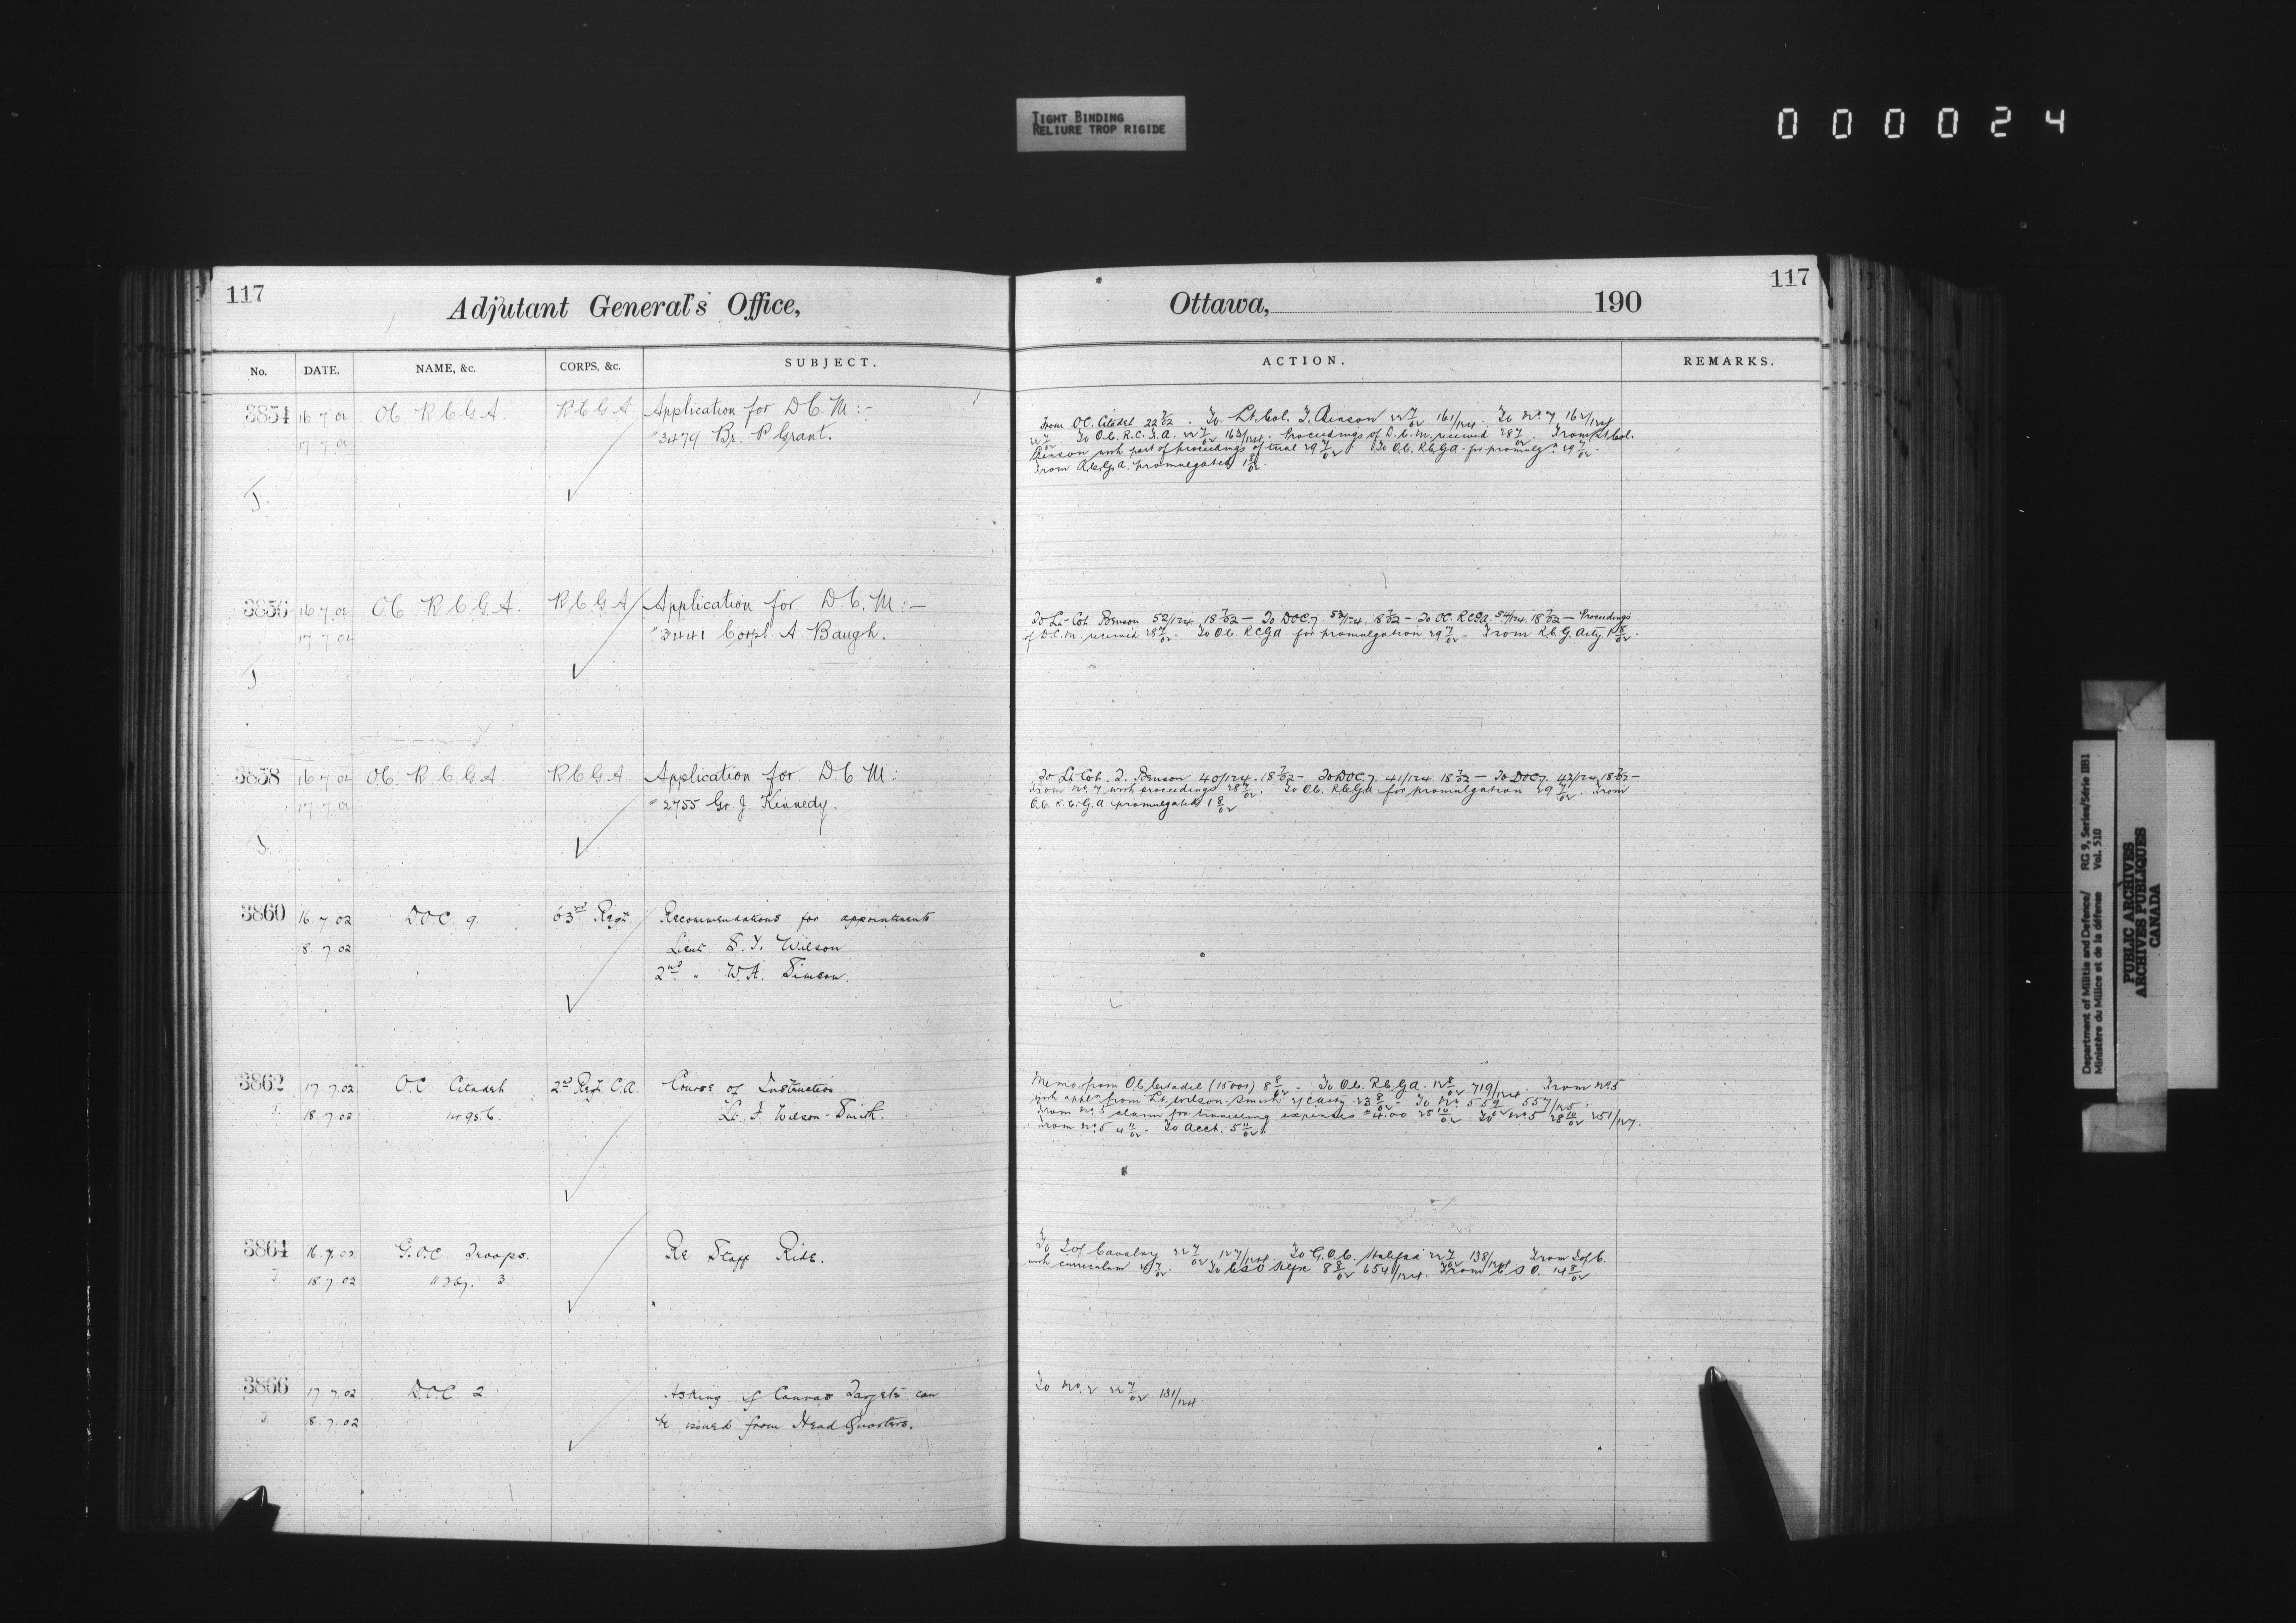 TIGHT BINDING
RELIURE TROP RIGIDE
000024
117
Adjutant General's Office,
No. DATE. NAME, &c. CORPS, &c. SUBJECT.
3854 16 7 02 OC R C G A. R C G A Application for D.C.M:-
17 7 02 3479 Br. P Grant.
J.
3856 16 7 02 OC R C G A. R C G A Application for D.C.M:-
17 7 02 3441 Corpl. A. Baugh.
J.
3858 16 7 02 OC. R. C. G. A. R C G A Application for D.C M:
17 7 02 2755 Gr. J. Kennedy.
J.
3860 16.7.02 DOC 9. 63rd Regt. Recommendations for appointments
18.7.02 Lieut S. Y. Wilson
2nd " W.A. Simson.
3862 17 7.02 O.C. Citadel 2nd Regt C.A. Course of Instruction
J. 18 7.02 Lt. F. Wilson-Smith.
3864 16.7.02 G.O.C Troops. Re Staff Ride.
J. 18 7.02 3
3866 17.7.02 D.O.C. 2. Asking if Canvas Targets can
J. 8.7.02 be issued from Head Quarters.
117
Ottawa, 190
ACTION. REMARKS.
From OC. Citadel 22 7/02. To Lt. Col. T. Benson 22 7/02 161/124. To No. 7 162/124
22 7/02. To O.C. R.C.G.A. 22 7/02 163/124. Proceedings of D.C.M. received 28 7/02. From Lt Col.
Benson with part of proceedings of trial 29 7/02. To O.C. R.C.G.A. for promulgn 29 7/02.
From R.C.G.A. promulgated 1 8/02.
To Lt-Col. Benson 52/124 18 7/02 - To DOC 7. 53/124. 18 7/02 - To OC. RCGA. 54/124. 18 7/02 - Proceedings
of D.C.M. received 28 7/02. To O.C. RCGA for promulgation 29 7/02 - From R.C.G. Arty 1 8/02.
To Lt Col. T. Benson 40/124. 18 7/02 - To DOC 7. 41/124. 18 7/02 - To DOC 7. 42/124. 18 7/02 -
From No. 7 with proceedings 28 7/02. To O.C. R.C.G.A for promulgation 29 7/02. From
O.C. R.C.G.A. promulgated 1 8/02
Memo. from O.C. Citadel (15001) 8 8/02 - To O.C. R.C.G.A. 12 8/02 719/124. From No 5
with from Lt. Wilson-Smith 23 8/02 - To No. 5 557/125.
From No. 5 claim for travelling expenses 4.00 25 10/02. To No 5 28 10/02 251/127.
From No. 5 4 11/02 - To Acct. 5 11/02.
To I of Cavalry 22 7/02 127/124. To G.O.C. Halifax 22 7/02 138/124. From I of C.
with curriculum 7/02. To CSO Hlfx 8 8/02 654/124. From C.S.O. 14 8/02.
To No. 2 22 7/02 131/124.
Department of Militia and Defence/ RG 9, Series/Série IIB1
Ministère du Milice et de la défense Vol. 510
PUBLIC ARCHIVES
ARCHIVES PUBLIQUES
CANADA